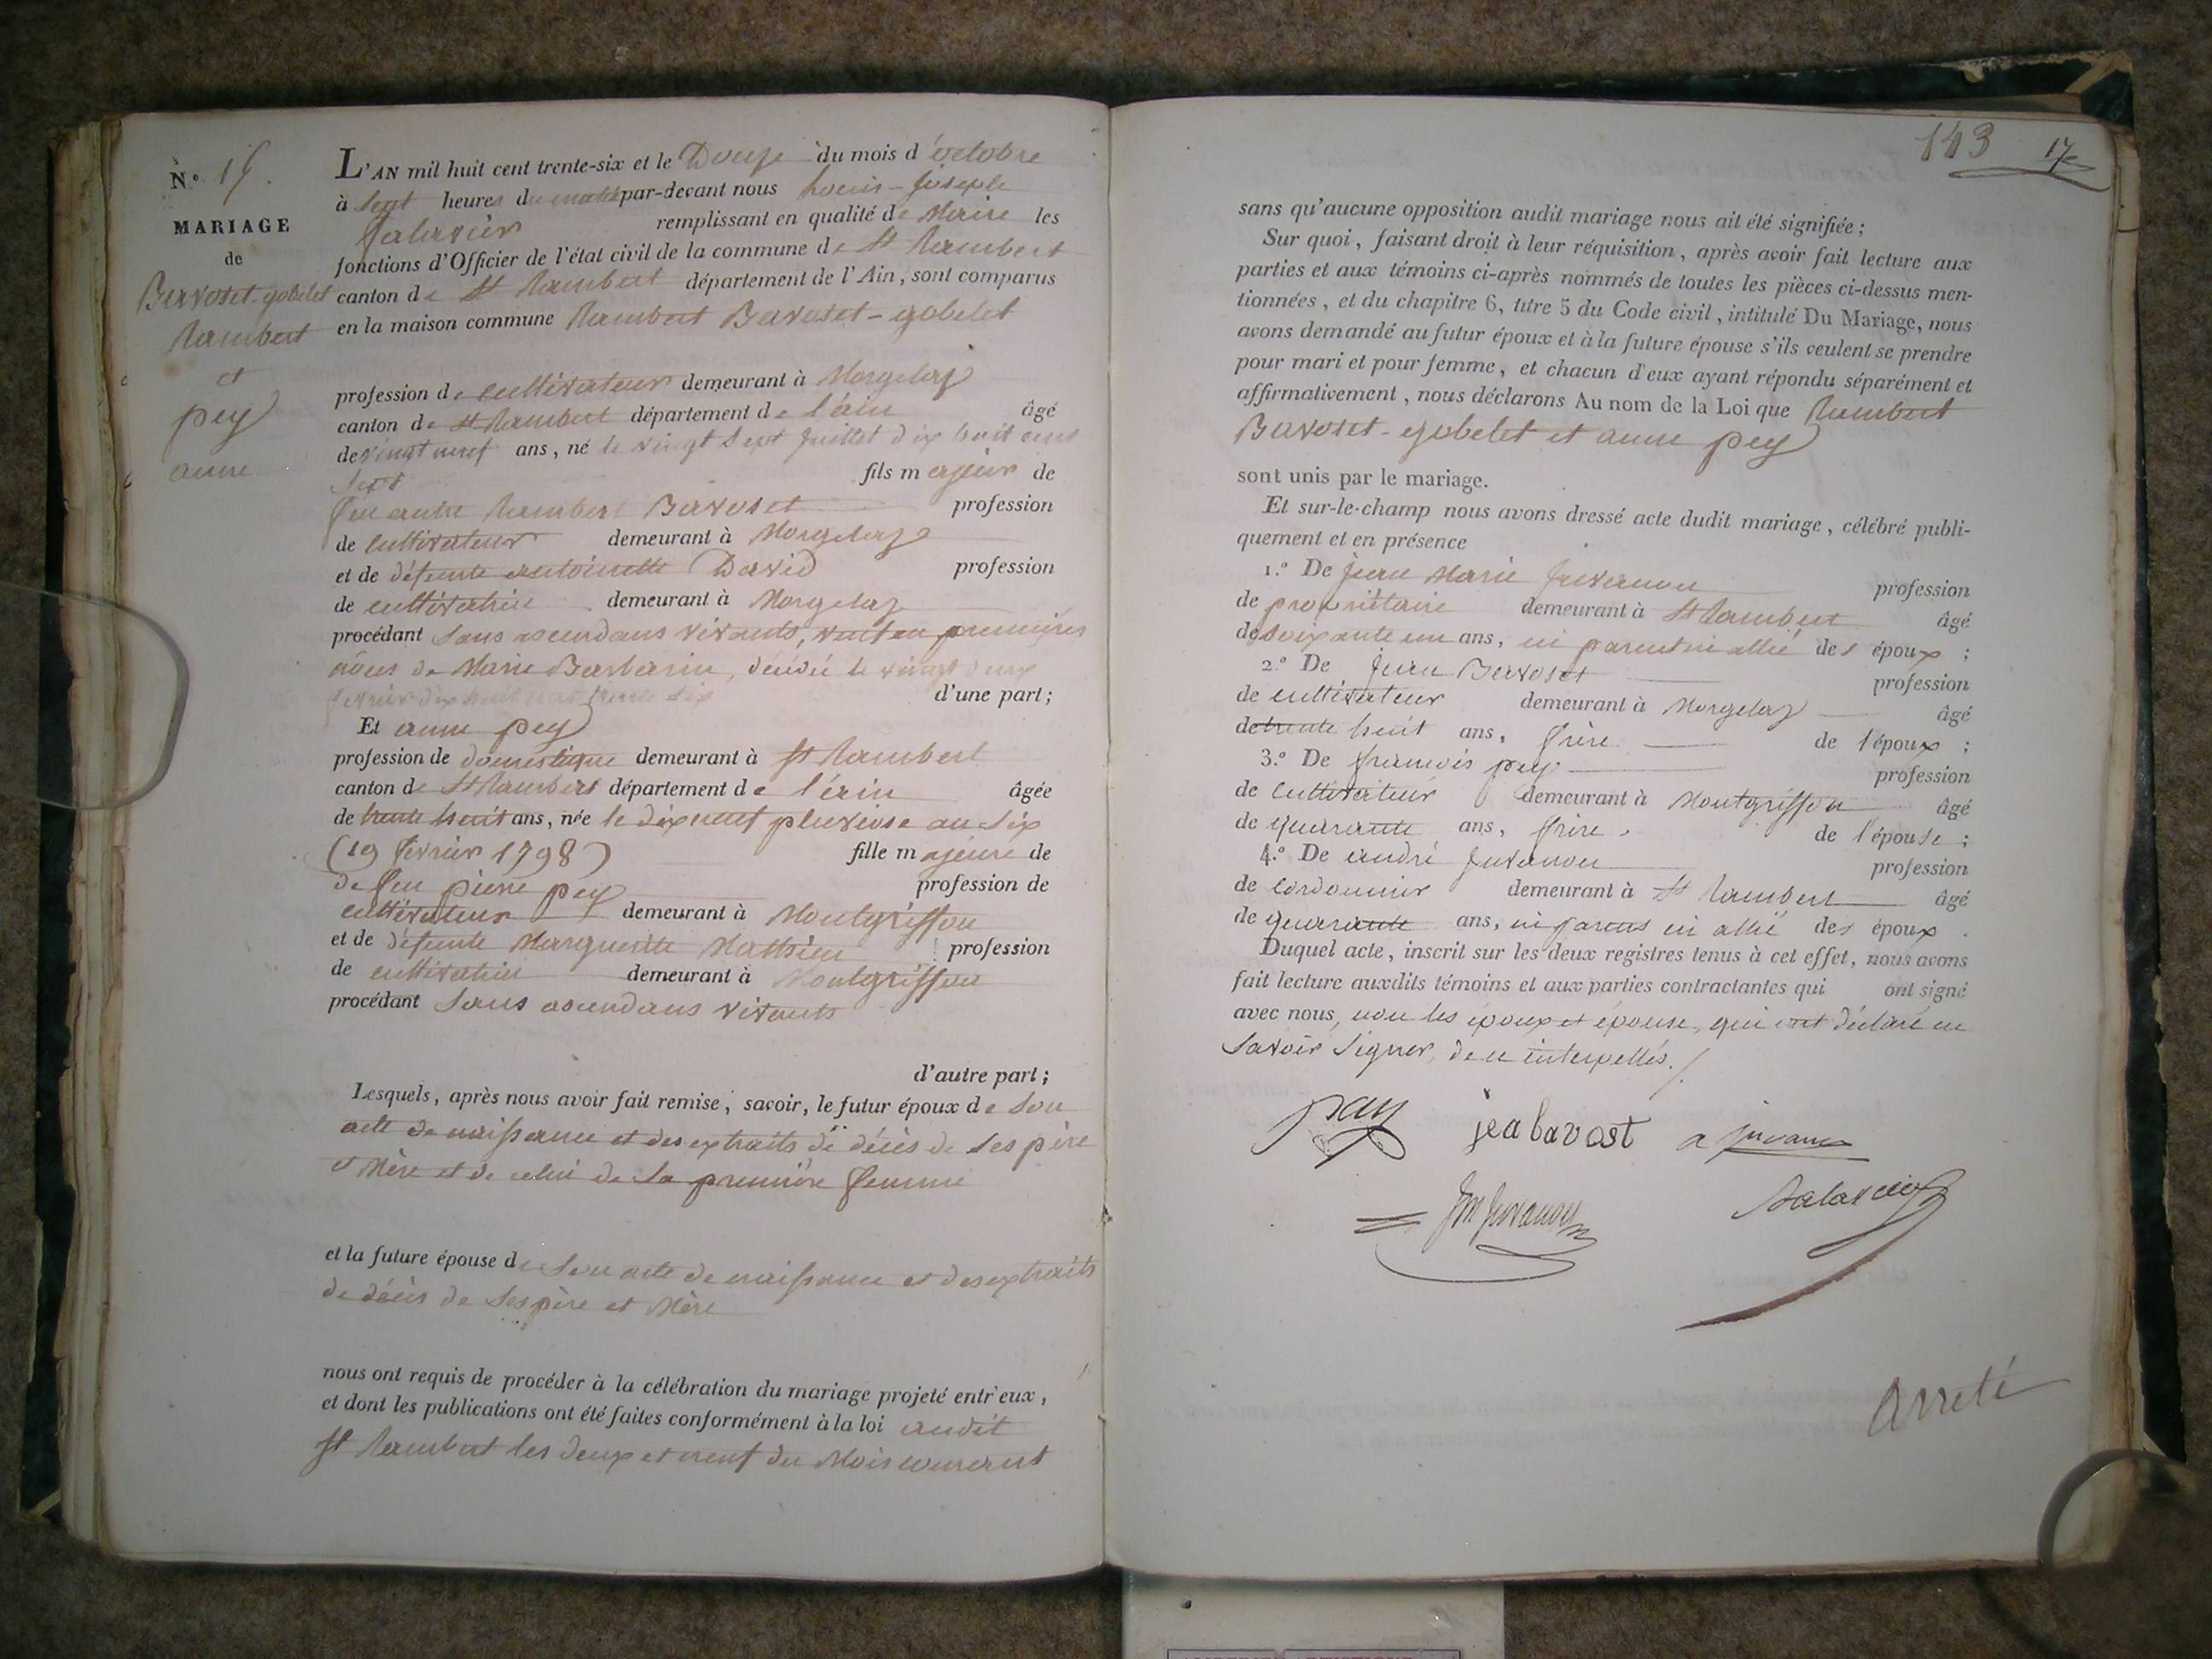 N.° 15.
MARIAGE
de
Bavoset-gobelet
Rambert
et
pey
anne
L'AN mil huit cent trente-six et le Douze du mois d'octobre
à sept heures du matin par-devant nous Louis-Joseph
Salavier remplissant en qualité de Maire les
fonctions d'Officier de l'état civil de la commune de St Rambert
canton de St Rambert département de l'Ain, sont comparus
en la maison commune Rambert Bavoset-gobelet
profession de cultivateur demeurant à Morgelaz
canton de St Rambert département de l'ain âgé
de vingt neuf ans, né le vingt sept juillet dix huit cent
sept fils majeur de
feu autre Rambert Bavoset profession
de cultivateur demeurant à Morgelaz
et de défunte antoinette David profession
de cultivatrice demeurant à Morgelaz
procédant sans ascendans vivants, veuf en premières
nôces de Marie Barbarin, décédée le vingt deux
février dix huit cent trente six d'une part;
Et anne pey
profession de domestique demeurant à St Rambert
canton de St Rambert département de l'ain âgée
de trente huit ans, née le dix neuf pluviose an six
(19 février 1798) fille majeure de
de feu pierre pey profession de
cultivateur demeurant à Montgriffon
et de défunte Marguerite Mathieu profession
de cultivatrice demeurant à Montgriffon
procédant sans ascendans vivants
d'autre part;
Lesquels, après nous avoir fait remise, savoir, le futur époux de son
acte de naissance et des extraits de décès de ses père
et Mère et de celui de sa première femme
et la future épouse de son acte de naissance et des extraits
de décès de ses père et Mère
nous ont requis de procéder à la célébration du mariage projeté entr'eux,
et dont les publications ont été faites conformément à la loi audit
St Rambert les deux et neuf du Mois courant
143 17
sans qu'aucune opposition audit mariage nous ait été signifiée;
Sur quoi, faisant droit à leur réquisition, après avoir fait lecture aux
parties et aux témoins ci-après nommés de toutes les pièces ci-dessus men-
tionnées, et du chapitre 6, titre 5 du Code civil, intitulé Du Mariage, nous
avons demandé au futur époux et à la future épouse s'ils veulent se prendre
pour mari et pour femme, et chacun d'eux ayant répondu séparément et
affirmativement, nous déclarons Au nom de la Loi que Rambert
Bavoset-gobelet et anne pey
sont unis par le mariage.
Et sur-le-champ nous avons dressé acte dudit mariage, célébré publi-
quement et en présence
1.° De jean Marie Juvanon profession
de propriétaire demeurant à St Rambert âgé
de soixante un ans, ni parent ni allié des époux;
2.° De Jean Bavoset profession
de cultivateur demeurant à Morgelaz âgé
de trente huit ans, frère de l'époux;
3.° De francois pey profession
de cultivateur demeurant à Montgriffon âgé
de quarante ans, frère de l'épouse;
4.° De andré Juvanon profession
de cordonnier demeurant à St Rambert âgé
de quarante ans, ni parent ni allié des époux.
Duquel acte, inscrit sur les deux registres tenus à cet effet, nous avons
fait lecture auxdits témoins et aux parties contractantes qui ont signé
avec nous, non les époux et épouse, qui ont déclaré ne
savoir signer, de ce interpellés./
pay jea bavost a juvanon
JM Juvanon Salavier
Arreté